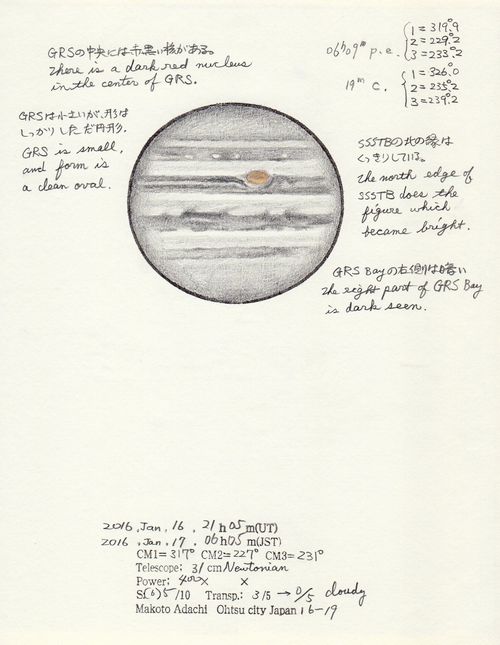 GRSの中央には赤黒い核がある。
There is a dark red nucleus
in the center of GRS.
06h09m p.e. 1 = 319°.9
2 = 229°.2
3 = 233°.2
19m c. 1 = 326.0
2 = 235°.2
3 = 239°.2
GRSは小さいが、形は
しっかりしただ円形.
GRS is small,
and form is
a clean oval.
SSSTBの北の縁は
くっきりしている。
The north edge of
SSSTB does the
figure which
became bright.
GRS Bayの右側は暗い
The right part of GRS Bay
is dark seen.
2016.Jan.16. 21h05m(UT)
2016.Jan.17. 06h05m(JST)
CM1=317° CM2=227° CM3=231°
Telescope: 31cm Newtonian
Power: 400× ×
S(6)5/10 Transp.: 3/5 → 0/5 cloudy
Makoto Adachi Ohtsu city Japan 16-19